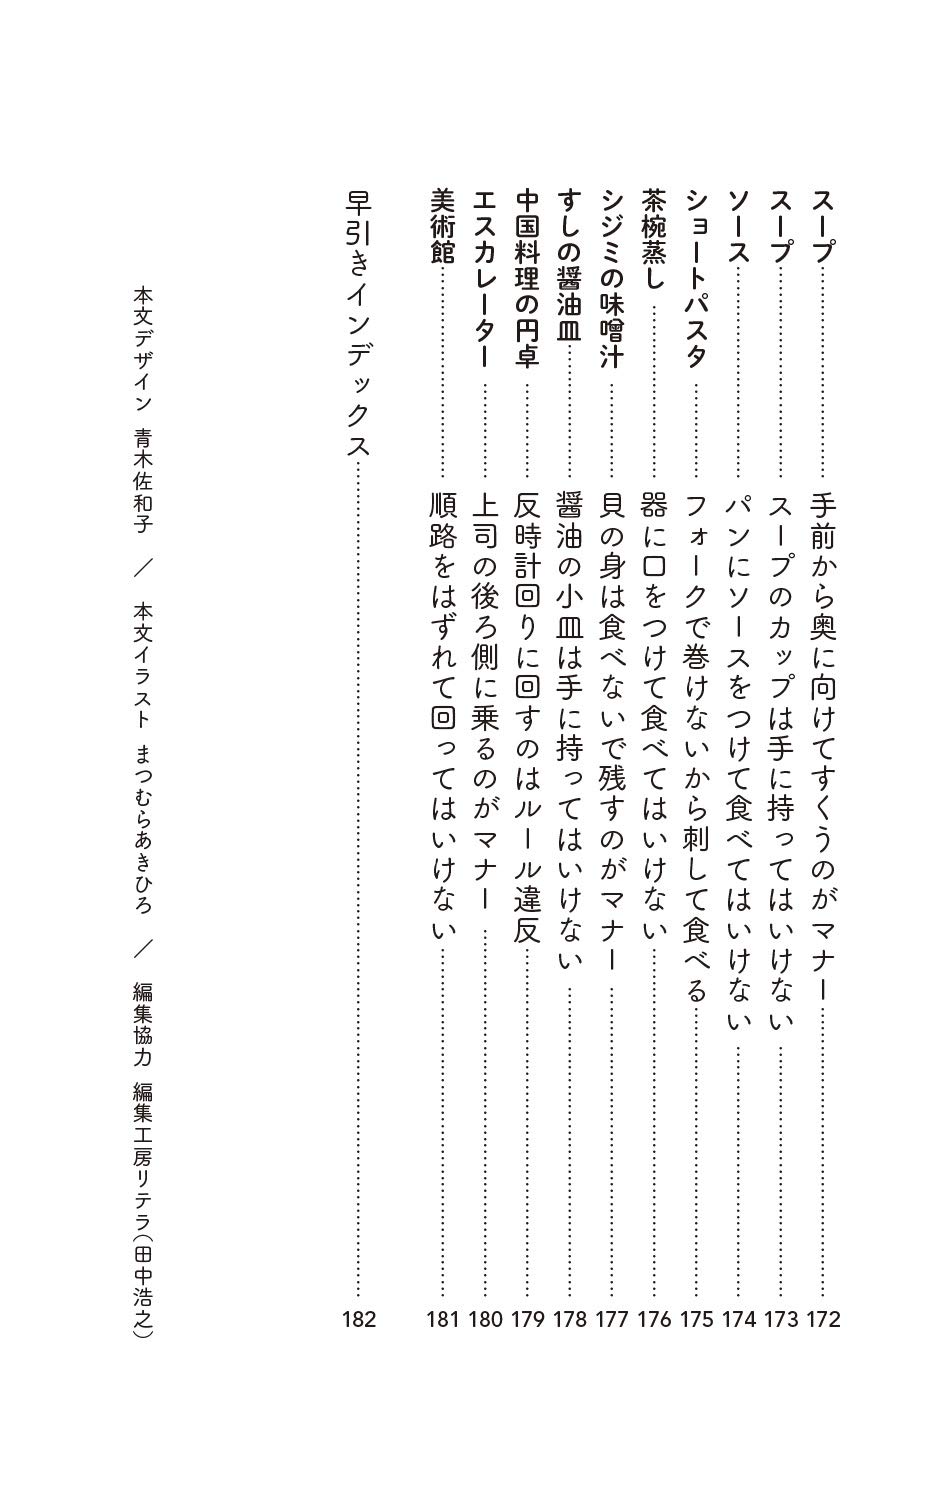 スープ……手前から奥に向けてすくうのがマナー……172
スープ……スープのカップは手に持ってはいけない……173
ソース……パンにソースをつけて食べてはいけない……174
ショートパスタ……フォークで巻けないから刺して食べる……175
茶椀蒸し……器に口をつけて食べてはいけない……176
シジミの味噌汁……貝の身は食べないで残すのがマナー……177
すしの醤油皿……醤油の小皿は手に持ってはいけない……178
中国料理の円卓……反時計回りに回すのはルール違反……179
エスカレーター……上司の後ろ側に乗るのがマナー……180
美術館……順路をはずれて回ってはいけない……181
早引きインデックス……182
本文デザイン 青木佐和子 ／ 本文イラスト まつむらあきひろ ／ 編集協力 編集工房リテラ(田中浩之)